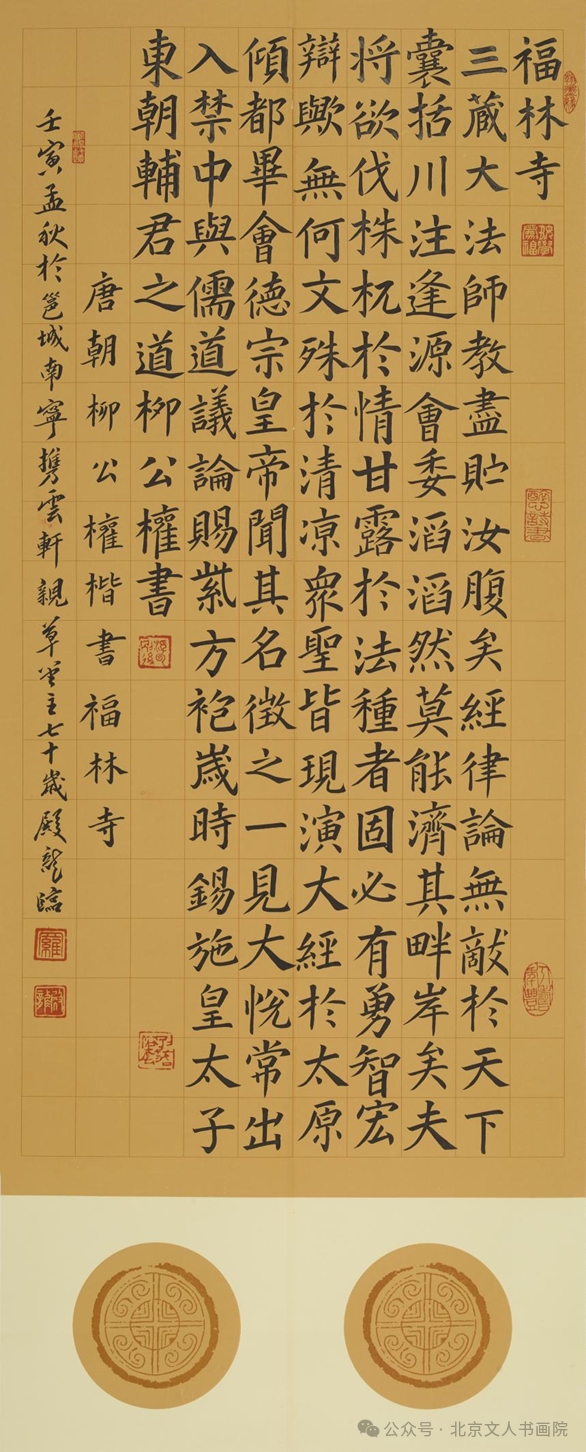 福林寺
三藏大法師教盡貯汝腹矣經律論無敵於天下
囊括川注逢源會委滔滔然莫能濟其畔岸矣夫
将欲伐株杌於情甘露於法種者固必有勇智宏
辯歟無何文殊於清凉衆聖皆現演大經於太原
傾都畢會德宗皇帝聞其名徵之一見大悅常出
入禁中與儒道議論賜紫方袍歲時錫施皇太子
東朝輔君之道柳公權書
唐朝柳公權楷書福林寺
壬寅孟秋於邕城南寧携雲軒親草堂主七十歲殿龍臨
公众号·北京文人书画院